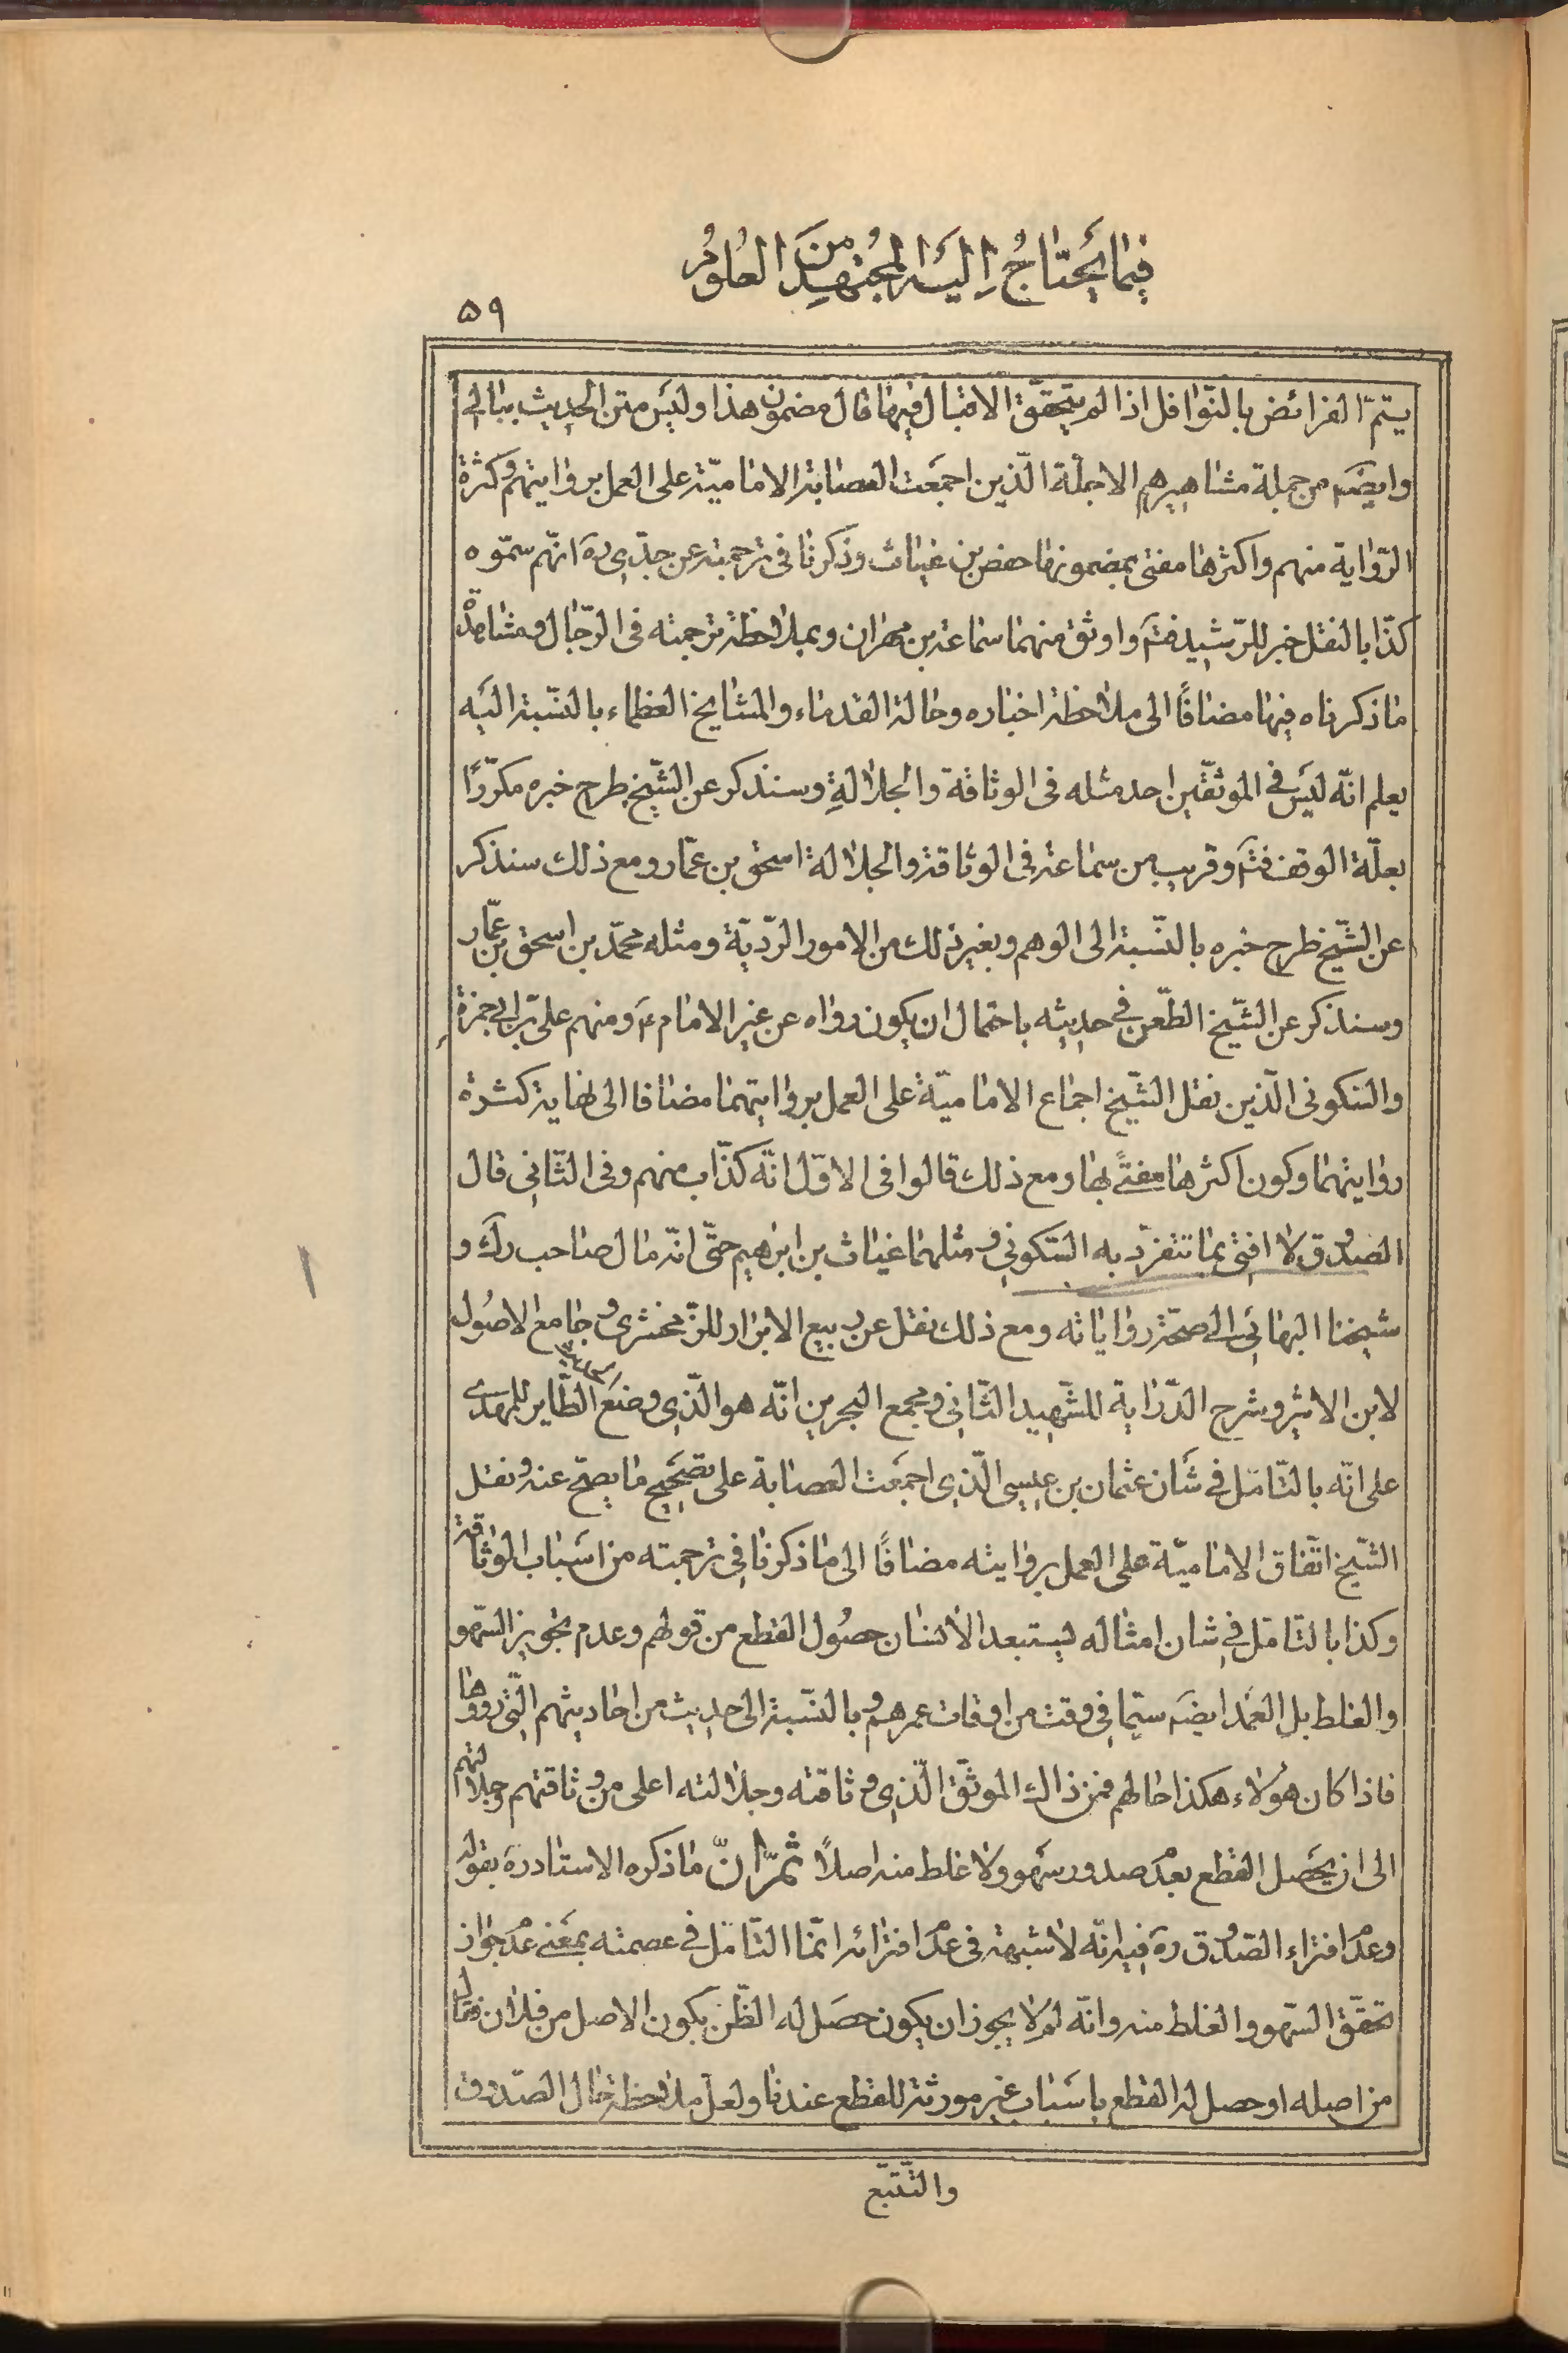 فيما يحتاج اليه المجتهد من العلوم
۵۹
يتمّ الفرائض بالنّوافل اذا لم يتحقّق الاقبال فيها قال مضمون هذا وليس متن الحديث ببالى
وايضَه من جملة مشاهيرهم الاجلّة الّذين اجمعت العصابة الاماميّة على العمل بروايتهم وكثرة
الرّواية منهم واكثرها مفتى بمضمونها حفص بن غياث وذكرنا فى ترجمته عن جدّى ره انّهم سمّوه
كذّابا لنقل خبر للرّشيد فتَه واوثق منهما سماعة بن مهران وبملاحظة ترجمته فى الرّجال ومشاهدة
ما ذكرناه فيها مضافًا الى ملاحظة اخباره وحالة القدماء والمشايخ العظماء بالنّسبة اليه
يعلم انّه ليس فى الموثّقين احد مثله فى الوثاقة والجلالةِ وسنذكر عن الشّيخ طرح خبره مكرّرًا
بعلّة الوقف فتَه وقريب من سماعة فى الوثاقة والجلالة اسحق بن عمّار ومع ذلك سنذكر
عن الشّيخ طرح خبره بالنّسبة الى الوهم وبغير ذلك من الامور الرّديّة ومثله محمّد بن اسحق بن عمّار
وسنذكر عن الشّيخ الطّعن فى حديثه باحتمال ان يكون رواه عن غير الامام ع ومنهم علىّ بن ابى حمزة
والسّكونى الّذين نقل الشّيخ اجماع الاماميّة على العمل بروايتهما مضافا الى نهاية كثرة
روايتهما وكون اكثرها مفتًى بها ومع ذلك قالوا فى الاوّل انّه كذّاب متهم وفى الثّانى قال
الصّدوق لا افتى بما تنفرّد به السّكونى ومثلهما غياث بن ابرهيم حتّى انّه مال صاحب رك و
شيخنا البهائى الى صحّة رواياته ومع ذلك نقل عن ربيع الابرار للزّمخشرى وجامع الاصُول
لابن الاثير وشرح الدّراية للشّهيد الثّانى ومجمع البحرين انّه هو الّذى وضع الطّاير للمهدى
على انّه بالتّامّل فى شأن عثمان بن عيسى الّذى اجمعت العصابة على تصحيح ما يصحّ عنه ونقل
الشّيخ اتّفاق الاماميّة على العمل بروايته مضافًا الى ما ذكرنا فى ترجمته من اسباب الوثاقة
وكذا بالتّامّل فى شان امثاله يستبعد الانسان حصُول القطع من قولهم وعدم تجويز السّهو
والغلط بل العَمد ايضَه سيّما فى وقت من اوقات عمرهم وبالنّسبة الى حديث من احاديثهم الّتى رووها
فاذا كان هؤلاء هكذا حالهم فمن ذاك الموثّق الّذى وثاقته وجلالته اعلى من وثاقتهم وجلالتهم
الى ان يحصل القطع بعدَم صدور سَهو ولا غلط منه اصلًا ثمّ انّ ما ذكره الاستاد ره بقوله
وعدم افتراء الصّدوق ره فيه انّه لا شبهة فى عدم افترائه انّما التّامّل فى عصمته بمعَنى عدم جواز
تحقّق السّهو والغلط منه وانّه لِمَ لا يجوز ان يكون حصَل له الظّن بكون الاصل من فلان فقال
من اصله او حصل له القطع باسَباب غير مورثة للقطع عندنا ولعلّ ملاحظة حال الصّدوق
والتّتبّع